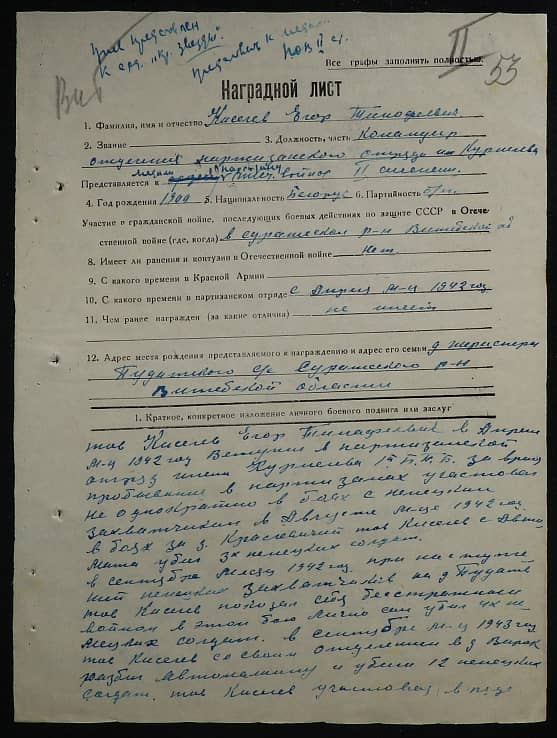 Вит
II
53
Все графы заполнять полностью.
Наградной лист
1. Фамилия, имя и отчество Киселев Егор Тимофеевич
2. Звание 3. Должность, часть Командир
отделения партизанского отряда им Курмелева
Представляется к медали "партизану Отеч. войны II степени.
4. Год рождения 1900 5. Национальность Белорус 6. Партийность б/п
Участие в гражданской войне, последующих боевых действиях по защите СССР в Отече-
ственной войне (где, когда) в Суражском р-н Витебской об
8. Имеет ли ранения и контузии в Отечественной войне нет
9. С какого времени в Красной Армии
10. С какого времени в партизанском отряде с Апреля м-ц 1942 год
11. Чем ранее награжден (за какие отличия) не имеет
12. Адрес места рождения представляемого к награждению и адрес его семьи д
Пудатского с/с Суражского р-н
Витебской области
1. Краткое, конкретное изложение личного боевого подвига или заслуг
тов Киселев Егор Тимофеевич в Апреле
м-ц 1942 год Вступил в партизанской
отряд имени Курмелева 1й Б.П.Б. за время
пребывание в партизанах участвовал
не однократно в боях с немецким
захватчиком в Августе м-це 1942 год
в боях за д. тов Киселев с Авто-
мата убил 3х немецких солдат.
в сентябре месяц 1942 год при наступле
нии немецких захватчиков на д Пудать
тов Киселев показал себя бесстрашным
войном в этом бою лично сам убил 4х не
мецких солдат. в сентябре м-ц 1943 год
тов Киселев со своим отделением в д
разбил автомашину и убили 12 немецких
солдат. тов Киселев участвовал в